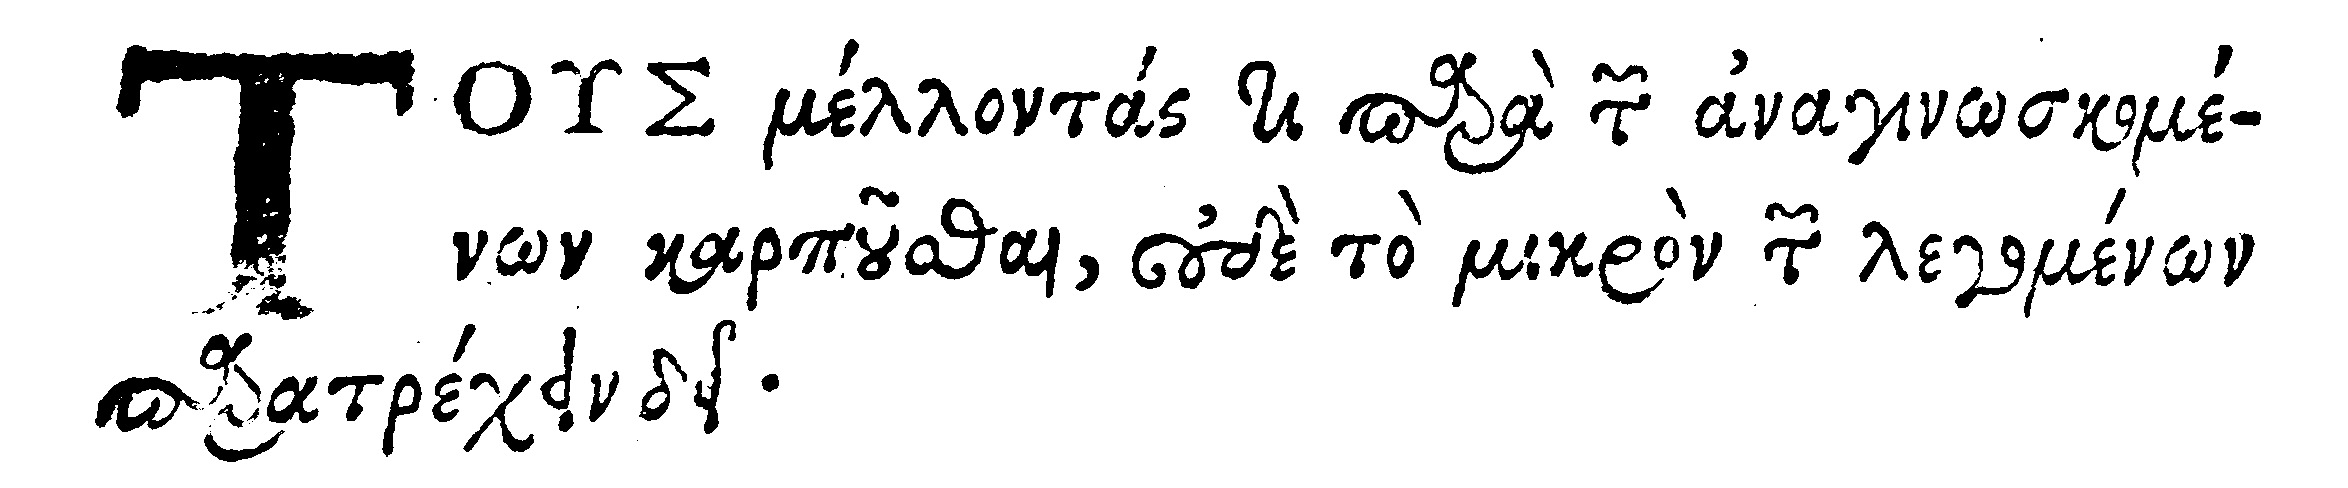 ΤΟΥΣ μέλλοντάς τι παρὰ τῶν ἀναγινωσκομέ-
νων καρποῦσθαι, οὐδὲ τὸ μικρὸν τῶν λεγομένων
παρατρέχειν δεῖ.